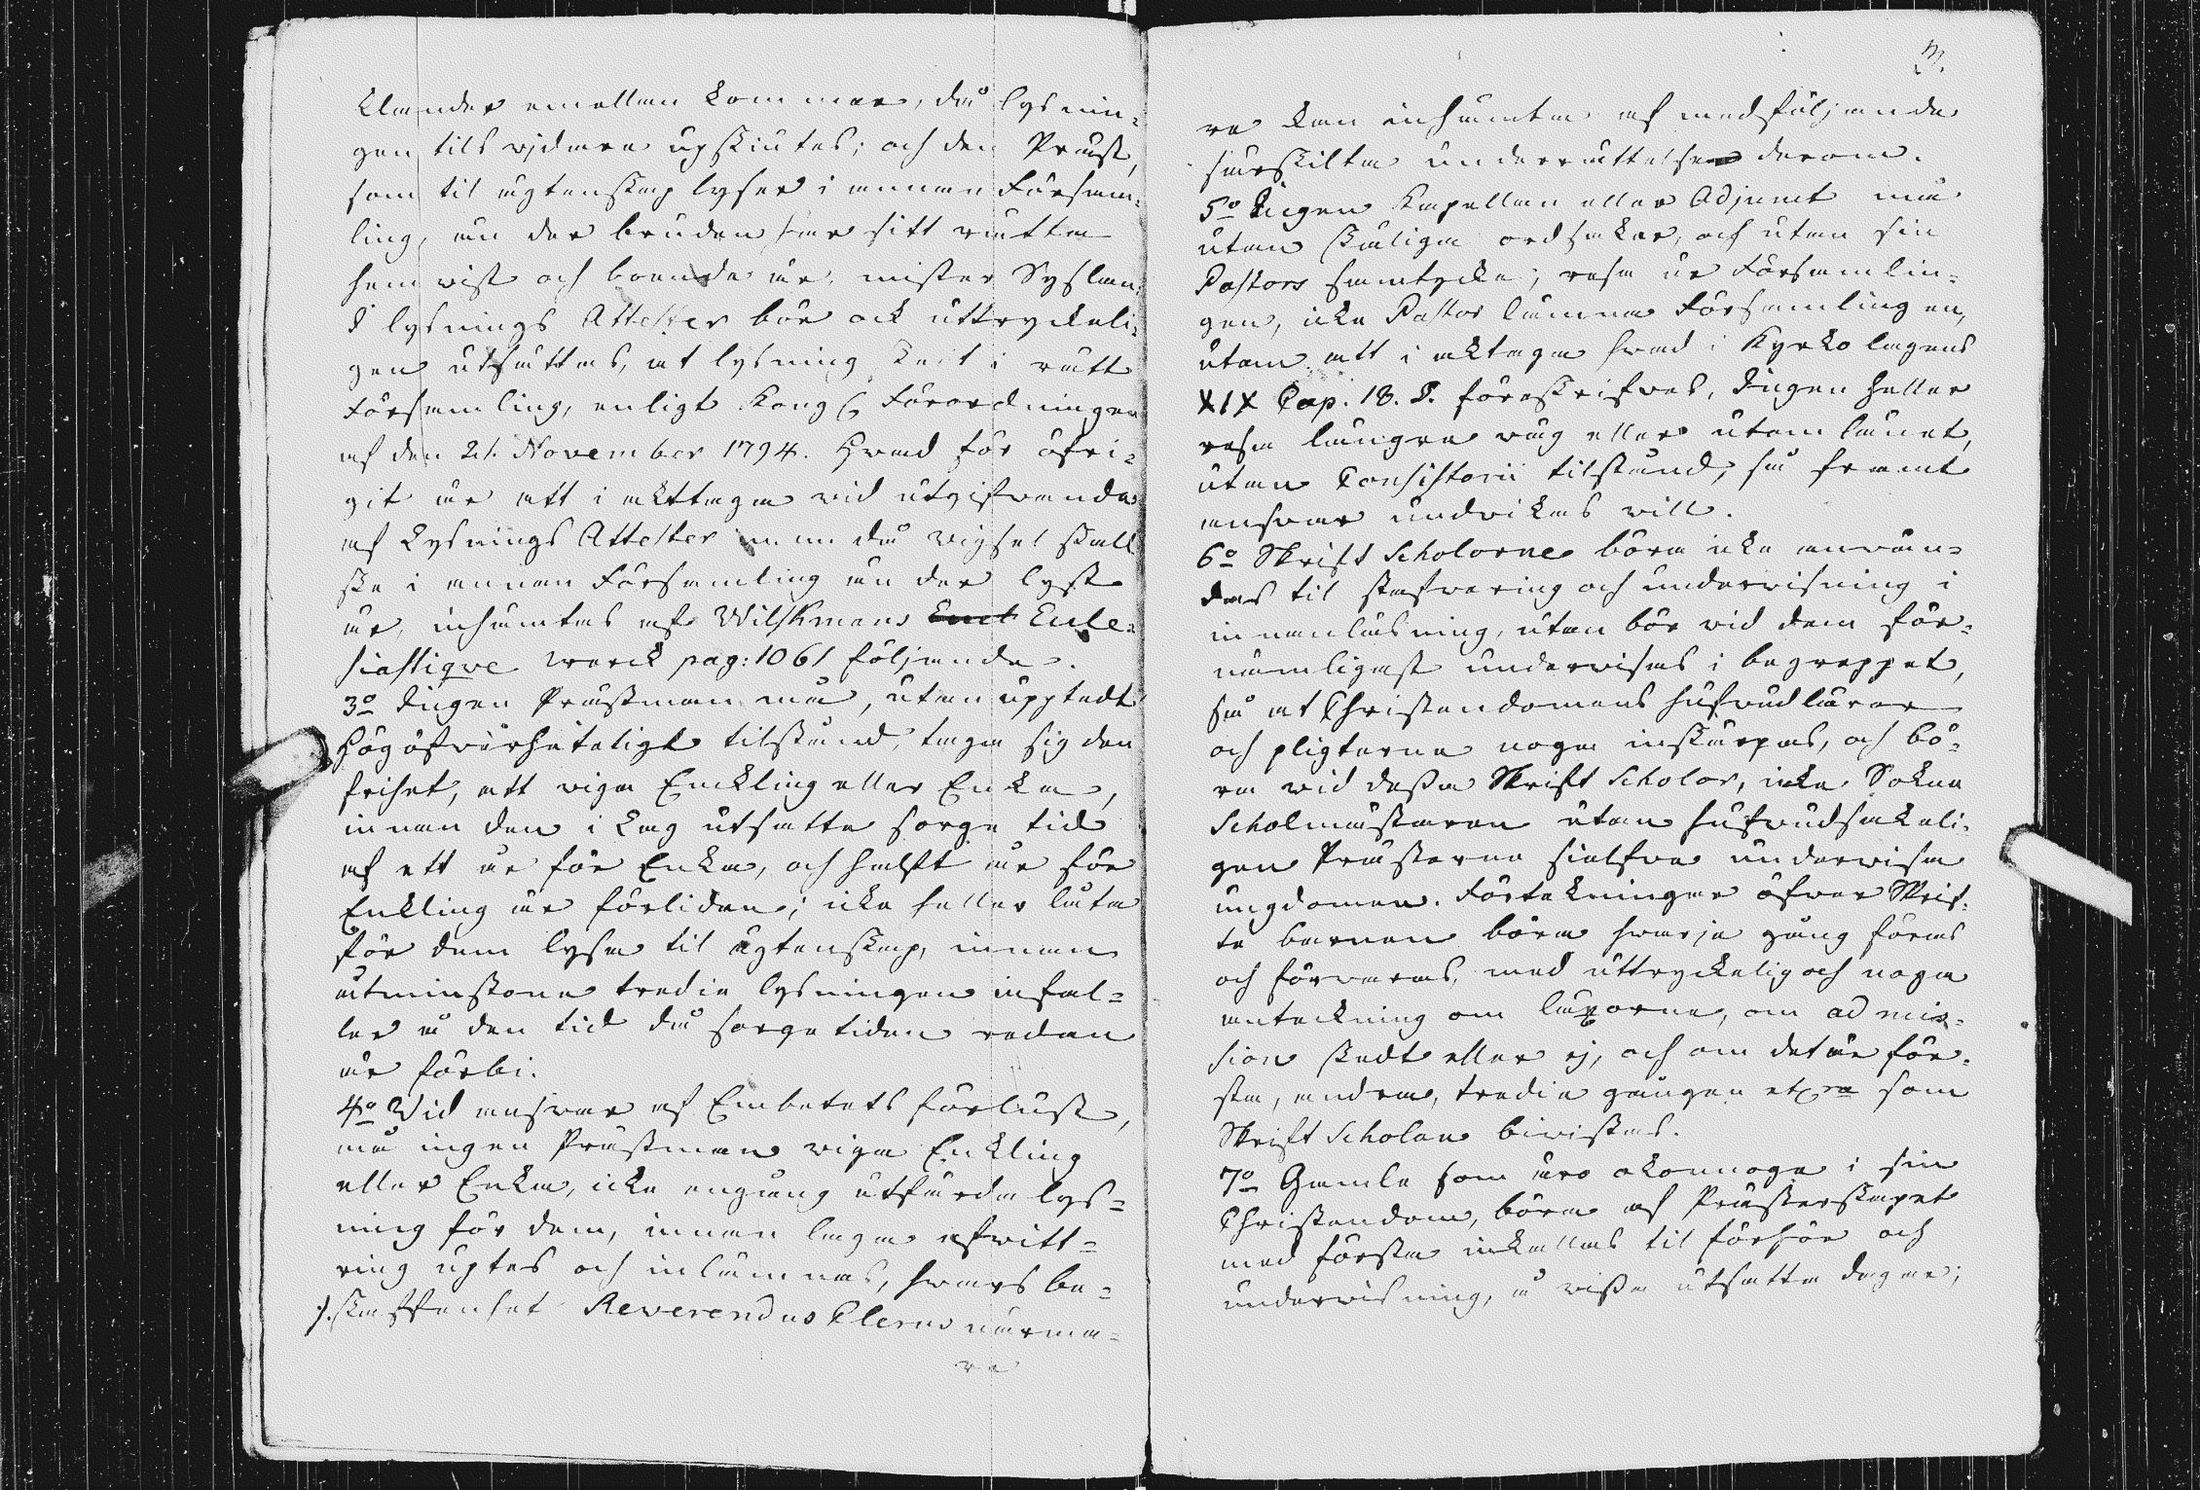 klander emellan kommer, då lysnin=
gen tils vidare upskiutes; och den Präst,
som til ägtenskap lyser i annan Försam=
ling, än der bruden har sitt rätta
hemvist och boende är, mister Syslan.
I lysnings Attester bör ock uttryckeli=
gen utsättas, at lysning skett i rätt
Församling, enligt Kongl. Förordningen
af den 21. November 1794. Hvad för öfri=
git är att i akttaga vid utgifvande
af Lysnings Attester, när då vigsel skall
ske i annan Församling än der lyst
är, inhämtas af Wilskmans Eccle=
siastique werck pag: 1061 följande.
3o Ingen Prästman må, utan upptedt
Högöfverheteligt tilstånd, taga sig den
frihet, att viga Enckling eller Enka,
innan den i Lag utsatte sorge tid
af ett år för Enka, och halft år för
Enkling är förliden; icke heller låta
för dem lysa til ägtenskap, innan
åtminstone tredie lysningen infal=
ler å den tid då sorgetiden redan
är förbi.
4o Vid answar af Embetets förlust,
må ingen Prästman viga Enkling
eller Enka, icke engång utfärda lys=
ning för dem, innan laga afvitt=
ring uptes och inlämnas, hwars be=
skaffenhet Reverendus Clerus närma=
re
3.
re kan inhämta af medföljande
särskilta underrättelse derom.
5o Ingen Kapellan eller Adjunct må
utan skäliga ordsaker, och utan sin
Pastors samtycke; resa ur Församlin=
gen, icke Pastor lämna Församlingen,
utan att i akttaga hvad i Kyrko lagens
XIX Cap. 18. §. föreskrifves, Ingen heller
resa längre väg eller utom länet,
utan Consistorii tilstånd, så framt
answar undvikas vill.
6o Skrift Scholorne böra icke använ=
das til stafvering och undervisning i
innanläsning, utan bör vid dem för=
nämligast undervisas i begreppet,
så at Christendomens hufvudläror
och pligterna noga inskärpas, och bö=
ra vid dessa Skrift Scholor, icke Sokne
Scholmästaren utan hufvudsakeli=
gen Prästerne sielfve undervisa
ungdomen. Förtekningar öfver Skrif=
te barnen böra hwarje gång föras
och förvaras, med uttryckelig och noga
anteckning om läxorne, om admis=
sion skedt eller ej, och om det är för=
sta, andra, tredie gången etc:ra som
Skrift Scholan bivistas.
7o Gamle som äro okunnoge i sin
Christendom, böra af Prästerskapet
med första inkallas til förhör och
undervisning, å vissa utsatta dagar;